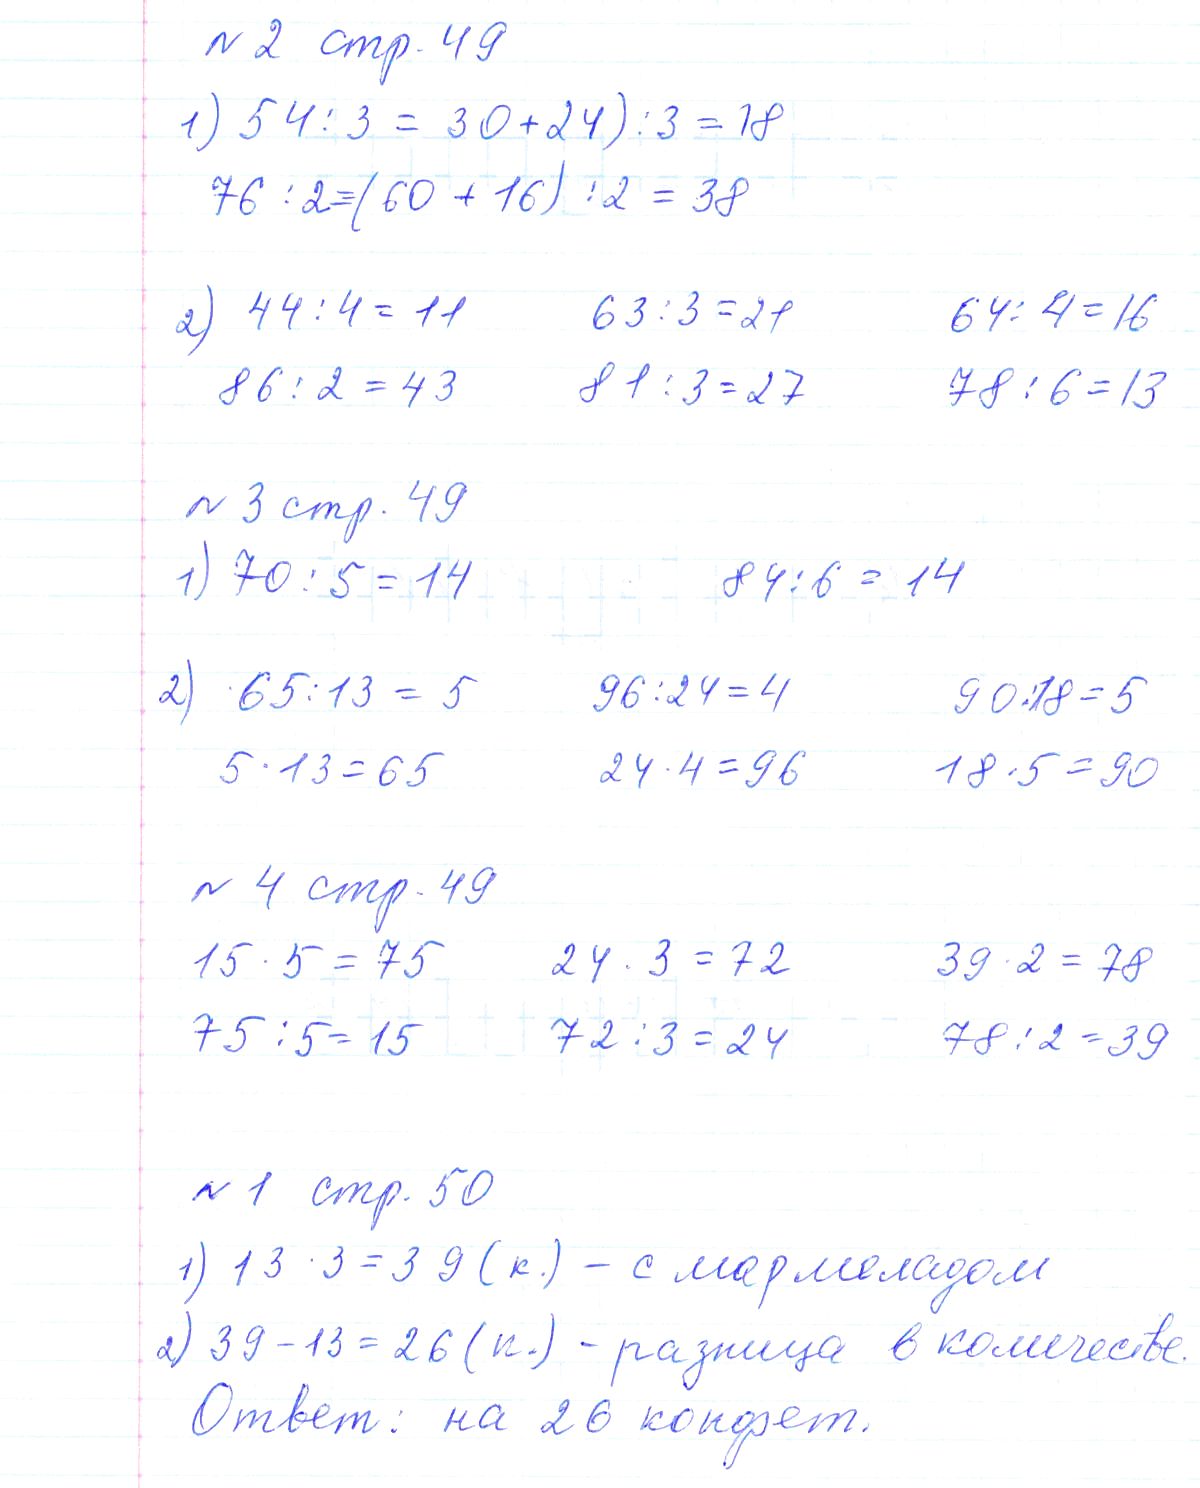 № 2 стр. 49
1) 54 : 3 = 30 + 24) : 3 = 18
76 : 2 = (60 + 16) : 2 = 38
2) 44 : 4 = 11 63 : 3 = 21 64 : 4 = 16
86 : 2 = 43 81 : 3 = 27 78 : 6 = 13
№ 3 стр. 49
1) 70 : 5 = 14 84 : 6 = 14
2) 65 : 13 = 5 96 : 24 = 4 90 : 18 = 5
5 · 13 = 65 24 · 4 = 96 18 · 5 = 90
№ 4 стр. 49
15 · 5 = 75 24 · 3 = 72 39 · 2 = 78
75 : 5 = 15 72 : 3 = 24 78 : 2 = 39
№ 1 стр. 50
1) 13 · 3 = 39 (к.) – с мармеладом
2) 39 – 13 = 26 (к.) – разница в количестве.
Ответ: на 26 конфет.